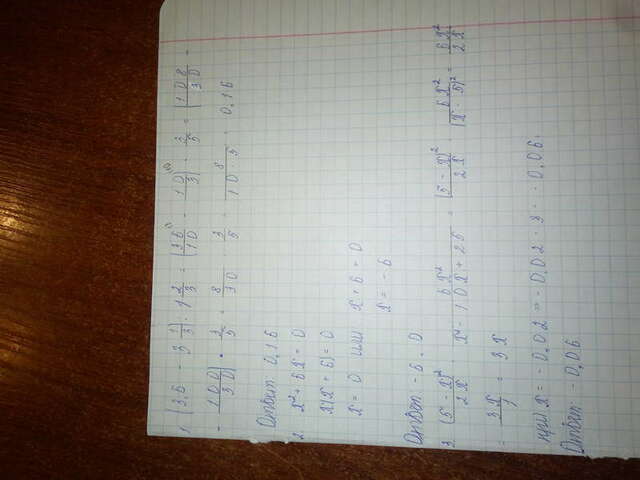 1 (3,6 - 3 1/3) : 1 2/3 = (36/10 - 10/3) · 3/5 = (108/30 -
- 100/30) · 3/5 = 8/30 · 3/5 = 8/10·5 = 0,16
Ответ 0,16
2 x² + 6x = 0
x(x + 6) = 0
x = 0 или x + 6 = 0
x = - 6
Ответ - 6. 0
3 (5 - x)²/2x · 6x²/x² - 10x + 25 = (5 - x)²/2x · 6x²/(x - 5)² = 6x²/2x
= 3x/1 = 3x
при x = - 0,02 = - 0,02 · 3 = - 0,06.
Ответ: - 0,06